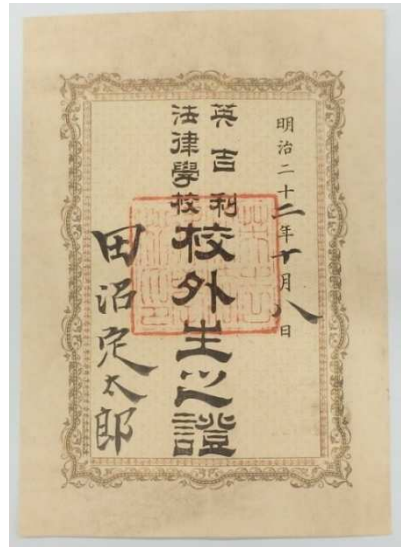 明治二十二年十月八日
英吉利
法律學校
校外生之證
田沼定太郎